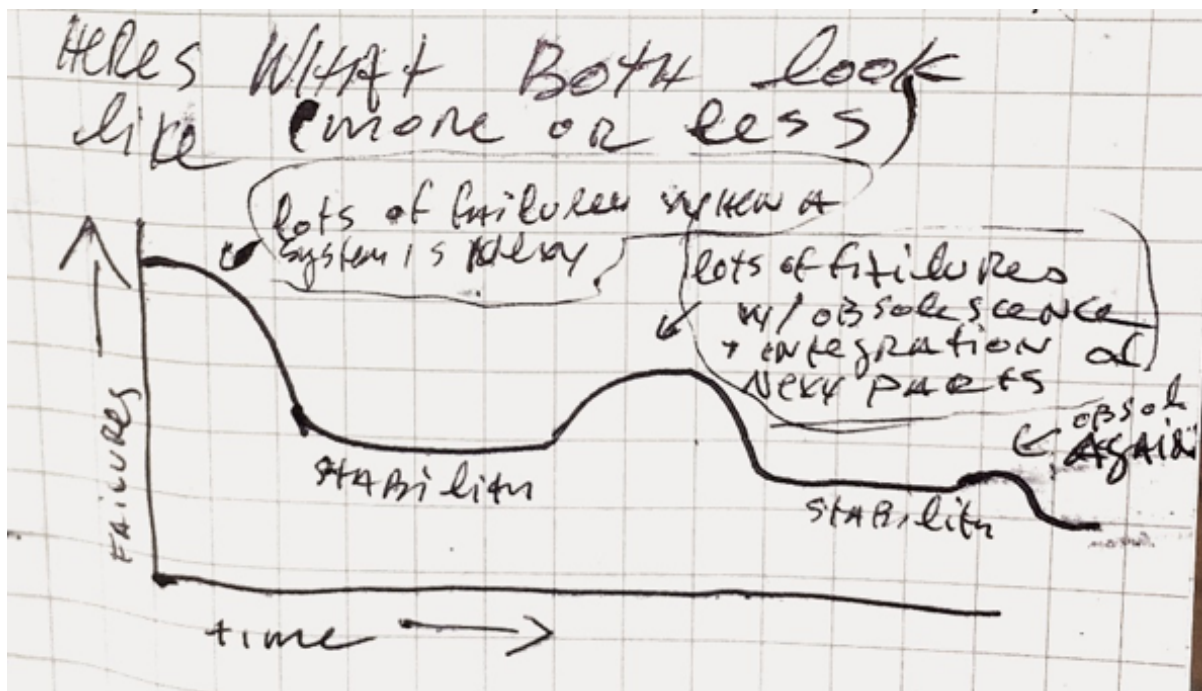 HERES WHAT BOTH look
like (more or less)
lots of failures when a
system is new
lots of failures
w/ obsolescence
+ integration of
new parts
obsol
Again
FAILURES
STABility
STABility
time